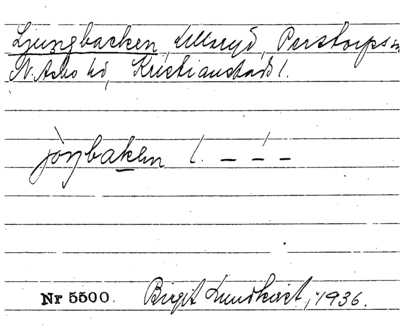 Ljungbacken, Ullaryd, Perstorps sn
N. Åsbo hd, Kristianstads l.
jòŋbaken l. – –́ –
Nr 5500. Birgit Lundkvist, 1936.